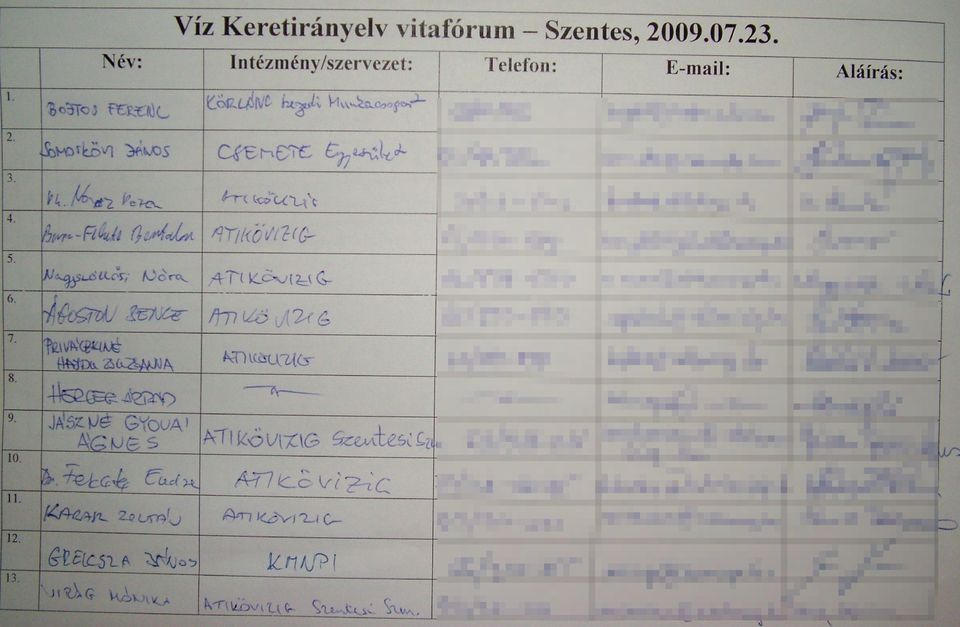 Víz Keretirányelv vitafórum – Szentes, 2009.07.23.
Név: Intézmény/szervezet: Telefon: E-mail: Aláírás:
1. BOJTOS FERENC KÖRLÁNC Szegedi Munkacsoport
2. SOMOSKÖVI JÁNOS CSEMETE Egyesület
3. ATIKÖVIZIG
4. ATIKÖVIZIG
5. Nagyszöllősi Nóra ATIKÖVIZIG
6. ÁGOSTON BENCE ATIKÖVIZIG
7. PRIVÁCZKINÉ
HAJDU ZSUZSANNA ATIKÖVIZIG
8. HERCEG ÁRPÁD
9. JÁSZNÉ GYOVAI
ÁGNES ATIKÖVIZIG Szentesi Sza
10. Dr. Fekete Endre ATIKÖVIZIG
11. ZOLTÁN ATIKÖVIZIG
12. JÁNOS KMNPI
13. VIRÁG MÓNIKA ATIKÖVIZIG Szentesi Szm.